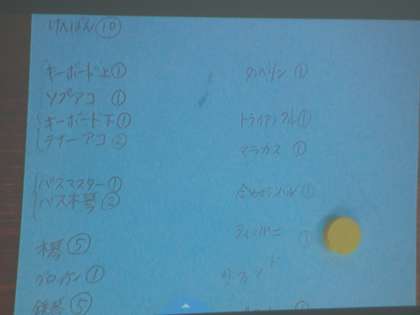 けんばん⑩
キーボード上①
ソプアコ ①
キーボード下①
テナーアコ②
バスマスター①
バス木琴②
木琴⑤
グロッケン①
鉄琴⑤
タンバリン①
トライアングル①
マラカス①
ティンパニ①